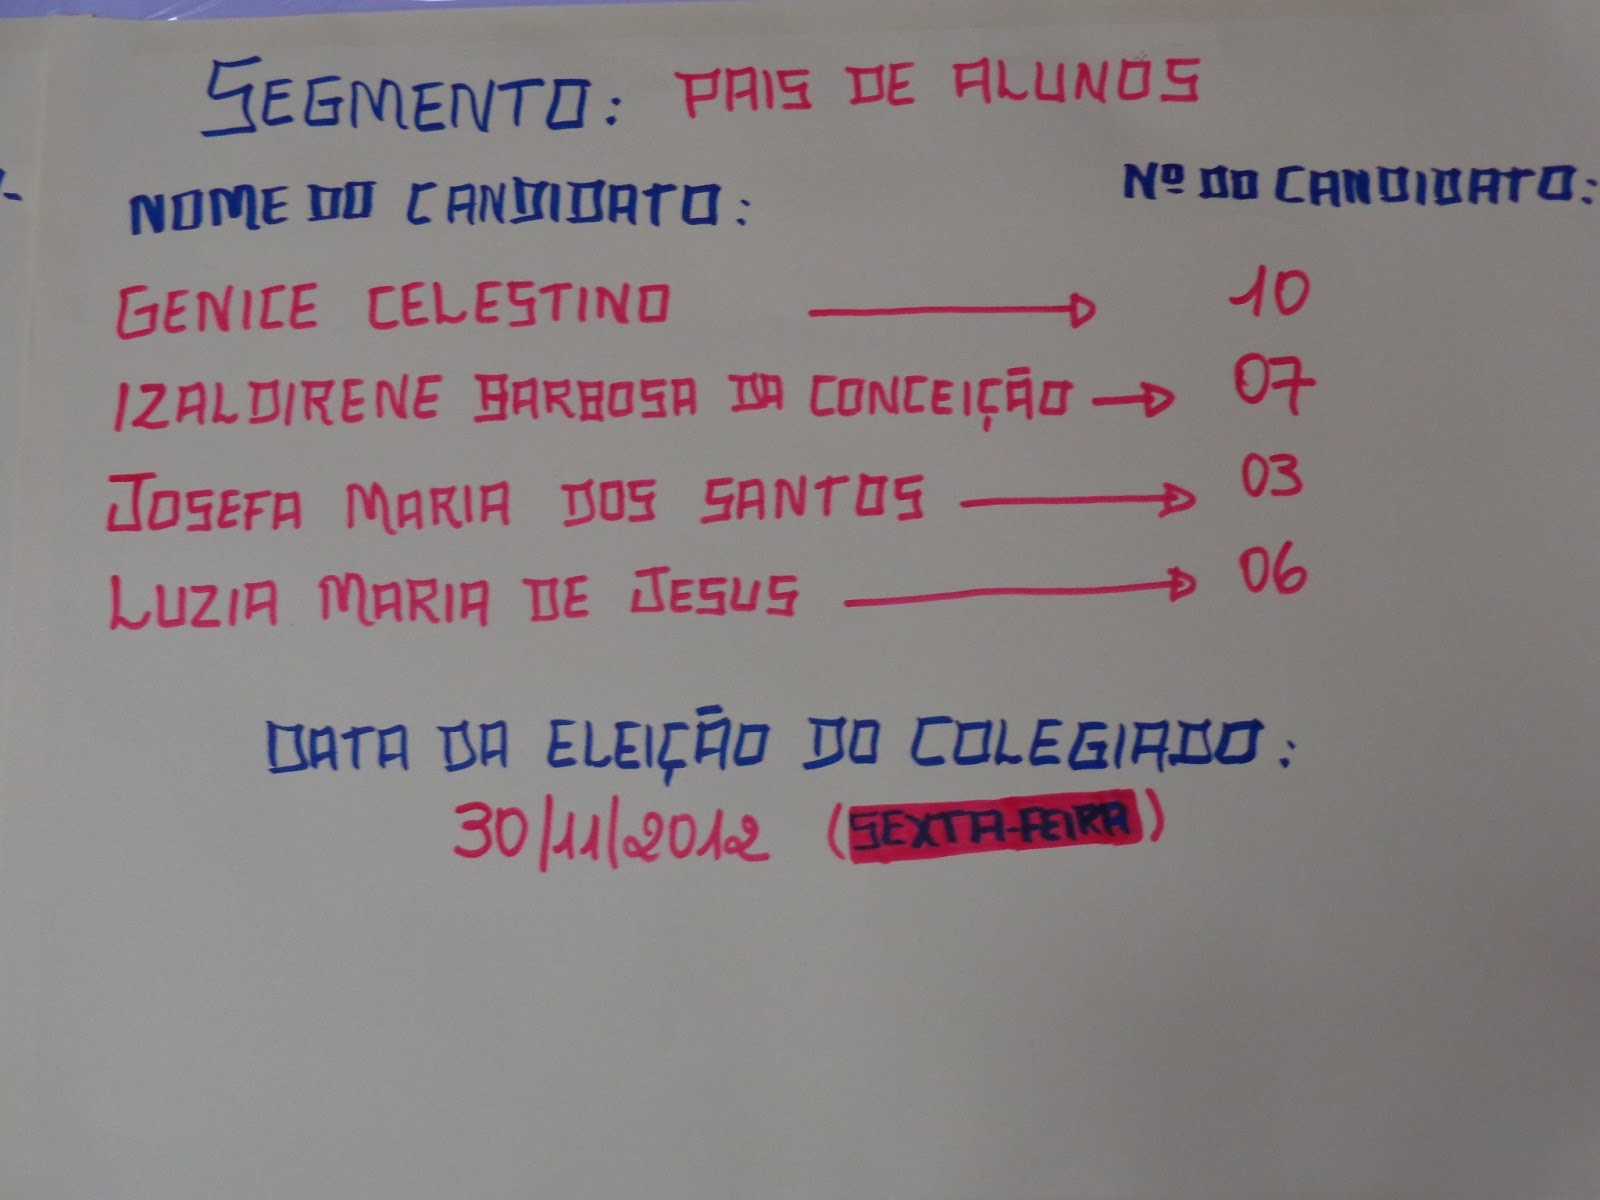 SEGMENTO: PAIS DE ALUNOS
NOME DO CANDIDATO: Nº DO CANDIDATO:
GENICE CELESTINO → 10
IZALDIRENE BARBOSA DA CONCEIÇÃO → 07
JOSEFA MARIA DOS SANTOS → 03
LUZIA MARIA DE JESUS → 06
DATA DA ELEIÇÃO DO COLEGIADO:
30/11/2012 (SEXTA-FEIRA)